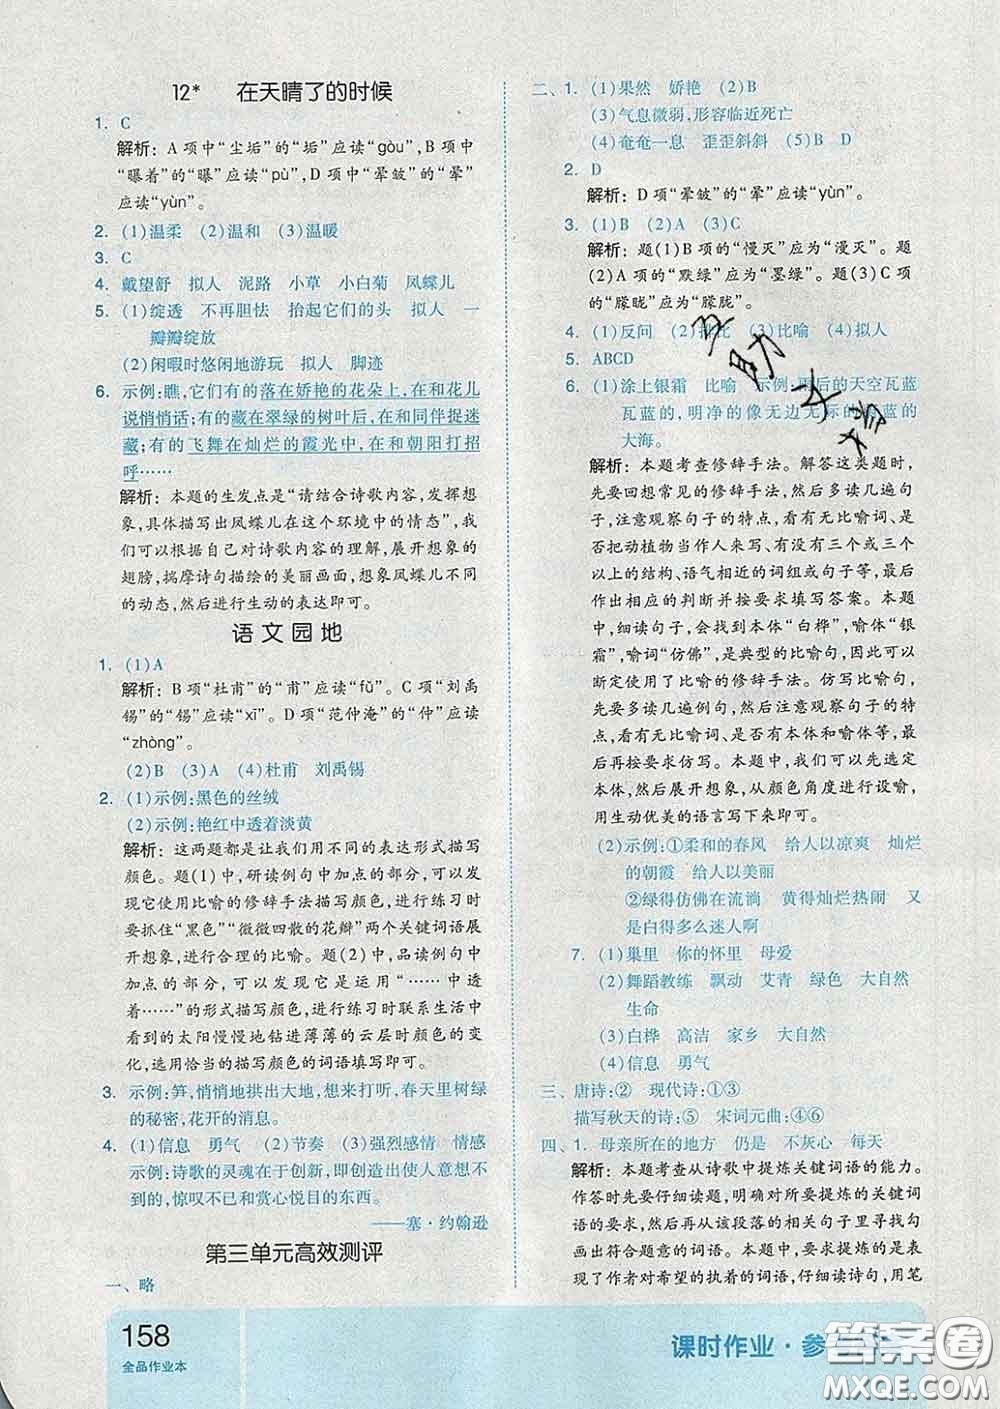 12*　在天晴了的时候
1. C
解析：A 项中“尘垢”的“垢”应读“gòu”，B 项
中“曝着”的“曝”应读“pù”，D 项中“晕皴”的“晕”
应读“yùn”。
2. (1)温柔　(2)温和　(3)温暖
3. C
4. 戴望舒　拟人　泥路　小草　小白菊　凤蝶儿
5. (1)绽透　不再胆怯　抬起它们的头　拟人　一
瓣瓣绽放
(2)闲暇时悠闲地游玩　拟人　脚迹
6. 示例：瞧，它们有的落在娇艳的花朵上，在和花儿
说悄悄话；有的藏在翠绿的树叶后，在和同伴捉迷
藏；有的飞舞在灿烂的霞光中，在和朝阳打招
呼……
解析：本题的生发点是“请结合诗歌内容，发挥想
象，具体描写出凤蝶儿在这个环境中的情态”，我
们可以根据自己对诗歌内容的理解，展开想象的
翅膀，揣摩诗句描绘的美丽画面，想象凤蝶儿不同
的动态，然后进行生动的表达即可。
语文园地
1. (1)A
解析：B 项“杜甫”的“甫”应读“fǔ”。C 项“刘禹
锡”的“锡”应读“xī”。D 项“范仲淹”的“仲”应读
“zhòng”。
(2)B　(3)A　(4)杜甫　刘禹锡
2. (1)示例：黑色的丝绒
(2)示例：艳红中透着淡黄
解析：这两题都是让我们用不同的表达形式描写
颜色。题(1)中，研读例句中加点的部分，可以发
现它是运用比喻的修辞手法描写颜色，进行练习时
要抓住“黑色”“微微四散的花瓣”两个关键词语展
开想象，进行合理的比喻。题(2)中，品读例句中
加点的部分，可以发现它是运用“……中透
着……”的形式描写颜色，进行练习时联系生活中
看到的太阳慢慢地钻进薄薄的云层时颜色的变
化，选用恰当的描写颜色的词语填写即可。
3. 示例：笋，悄悄地拱出大地，想来打听，春天里树绿
的秘密，花开的消息。
4. (1)信息　勇气　(2)节奏　(3)强烈感情　情感
示例：诗歌的灵魂在于创新，即创造出使人意想不
到的，惊叹不已和赏心悦目的东西。
——塞·约翰逊
第三单元高效测评
一、略
二、1. (1)果然　娇艳　(2)B
(3)气息微弱，形容临近死亡
(4)奄奄一息　歪歪斜斜　(5)B　D
2. D
解析：D 项“晕皴”的“晕”应读“yùn”。
3. (1)B　(2)A　(3)C
解析：题(1)B 项的“慢灭”应为“漫灭”。题
(2)A 项的“默绿”应为“墨绿”。题(3)C 项
的“朦胧”应为“朦胧”。
4. (1)反问　(2)排比　(3)比喻　(4)拟人
5. ABCD
6. (1)涂上银霜　比喻　示例：雨后的天空瓦蓝
瓦蓝的，明净的像无边无际的蔚蓝的
大海。
解析：本题考查修辞手法。解答这类题时，
先要回想常见的修辞手法，然后多读几遍句
子，注意观察句子的特点，看有无比喻词、是
否把动植物当作人来写、有无三个或三个
以上的结构、语气相近的词组或句子等，最后
作出相应的判断并按要求填写答案。本题
中，细读句子，会找到本体“白桦”，喻体“银
霜”，喻词“仿佛”，是典型的比喻句，可以由此
断定使用了比喻的修辞手法。仿写比喻句，
先要多读几遍例句，然后注意观察句子的特
点，看有无比喻词、是否有本体和喻体等，最
后再按要求仿写。本题中，我们可以先选定
本体，然后展开想象，从颜色角度进行设喻，
用生动优美的语言写下来即可。
(2)示例：①柔和的春风　给人以凉爽　灿烂
的朝霞　给人以美丽
②绿得仿佛在流淌　黄得灿烂热闹　又
是白得多么迷人啊
7. (1)巢里　你的怀里　母爱
(2)舞蹈教练　飘动　艾青　绿色　大自然
生命
(3)白桦　高洁　家乡　大自然
(4)信息　勇气
三、唐诗：②　现代诗：①③
描写秋天的诗：⑤　宋词元曲：④⑥
四、1. 母亲所在的地方　仍是　不灰心　每天
解析：本题考查从诗歌中提炼关键词语的能力。
作答时先要仔细读题，明确对所要提炼的关键词
语的要求，然后在相关的段落或句子里寻找勾
画出符合题意的词语。本题中，要求提炼的是表
现了作者对希望的执着的词语，仔细读诗句，用笔
158
全品作业本
课时作业·参
答案圈
MXQE.COM
互
助
文